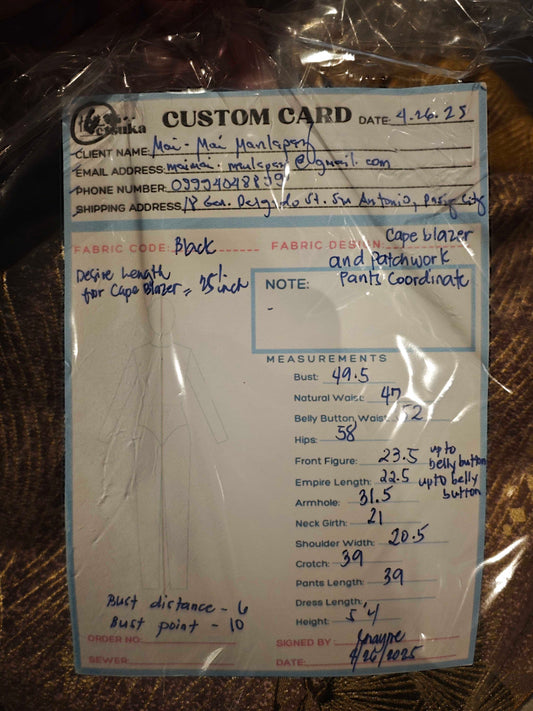 CUSTOM CARD DATE: 4.26.25
CLIENT NAME: Mai-Mai Manlapaz
EMAIL ADDRESS: maimai.manlapaz@gmail.com
PHONE NUMBER: 09994048839
SHIPPING ADDRESS: 18 Gen. Delgado St. San Antonio, Pasig City
FABRIC CODE: Black
FABRIC DESIGN: Cape blazer
and Patchwork
Pants Coordinate
Desire Length
for Cape Blazer = 25 inch
NOTE:
-
MEASUREMENTS
Bust: 49.5
Natural Waist: 47
Belly Button Waist: 52
Hips: 58
Front Figure: 23.5 up to belly button
Empire Length: 22.5 up to belly button
Armhole: 31.5
Neck Girth: 21
Shoulder Width: 20.5
Crotch: 39
Pants Length: 39
Dress Length:
Height: 5'4
Bust distance - 6
Bust point - 10
ORDER NO.:
SEWER:
SIGNED BY:
DATE: 4/26/2025